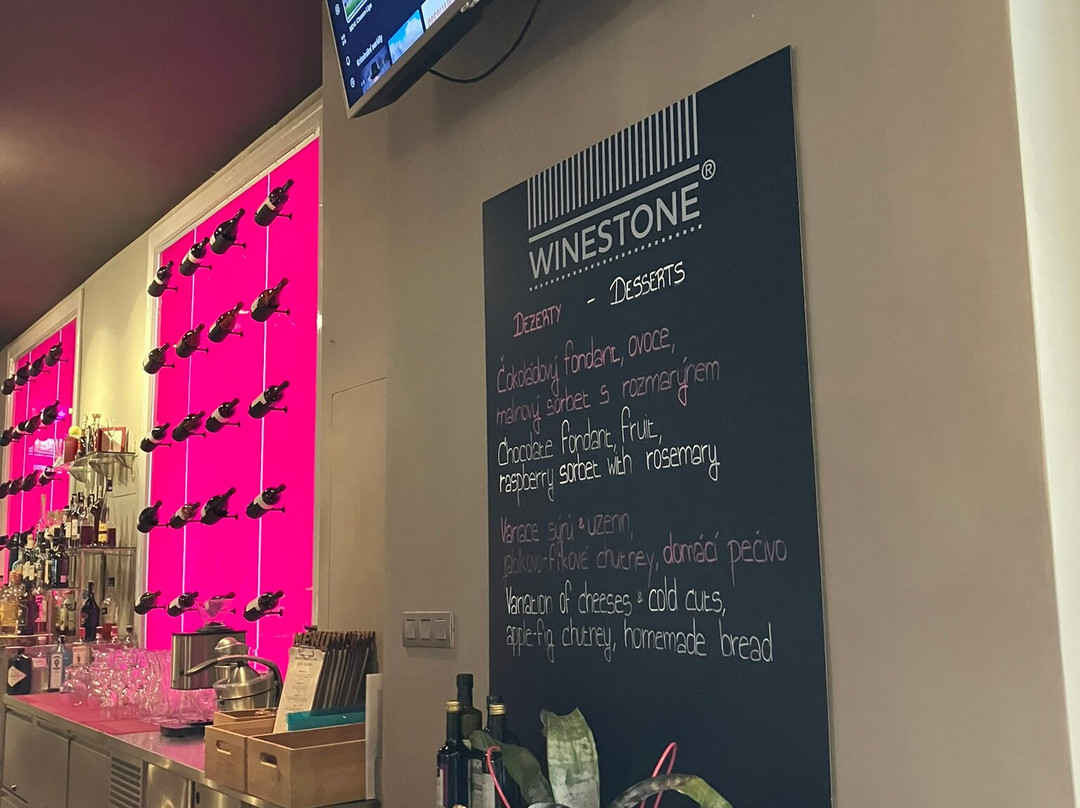 WINESTONE®
DEZERTY - DESSERTS
Čokoládový fondant, ovoce,
malinový sorbet s rozmarýnem
Chocolate fondant, fruit,
raspberry sorbet with rosemary
Variace sýrů & uzenin,
jablkovo-fíkové chutney, domácí pečivo
Variation of cheeses & cold cuts,
apple-fig chutney, homemade bread